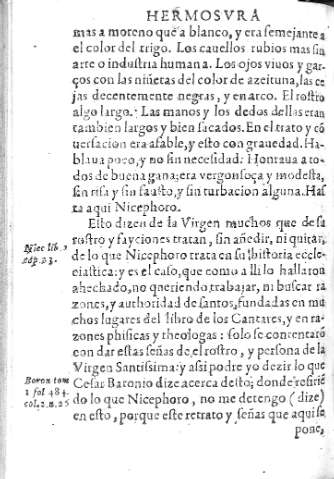 HERMOSVRA
mas a moreno que a blanco, y era semejante a
el color del trigo. Los cauellos rubios mas sin
arte o industria humana. Los ojos viuos y gar
ços con las niñetas del color de azeituna, las ce
jas decentemente negras, y en arco. El rostro
algo largo. Las manos y los dedos dellas eran
tambien largos y bien sacados. En el trato y cõ
uersacion era afable, y esto con grauedad. Ha-
blaua poco, y no sin necesidad. Honraua a to-
dos de buena gana; era vergonsoça y modesta,
sin risa y sin fausto, y sin turbacion alguna. Has
ta aqui Nicephoro.
Esto dizen de la Virgen muchos que de su
rostro y fayciones tratan, sin añedir, ni quitar,
de lo que Nicephoro trata en su historia eccle-
siastica: y es el caso, que como alli lo hallaron
ahechado, no queriendo trabajar, ni buscar ra
zones, y authoridad de santos, fundadas en mu
chos lugares del libro de los Cantares, y en ra-
zones phisicas y theologas: solo se contentarõ
con dar estas señas del rostro, y persona de la
Virgen Santissima: y assi podre yo dezir lo que
Cesar Baronio dize acerca desto; donde refiriẽ
do lo que Nicephoro, no me detengo (dize)
en esto, porque este retrato y señas que aqui se
pone,
Nice lib. 2
cap. 23.
Boron tom
1 fol 484.
col. 2. n. 25